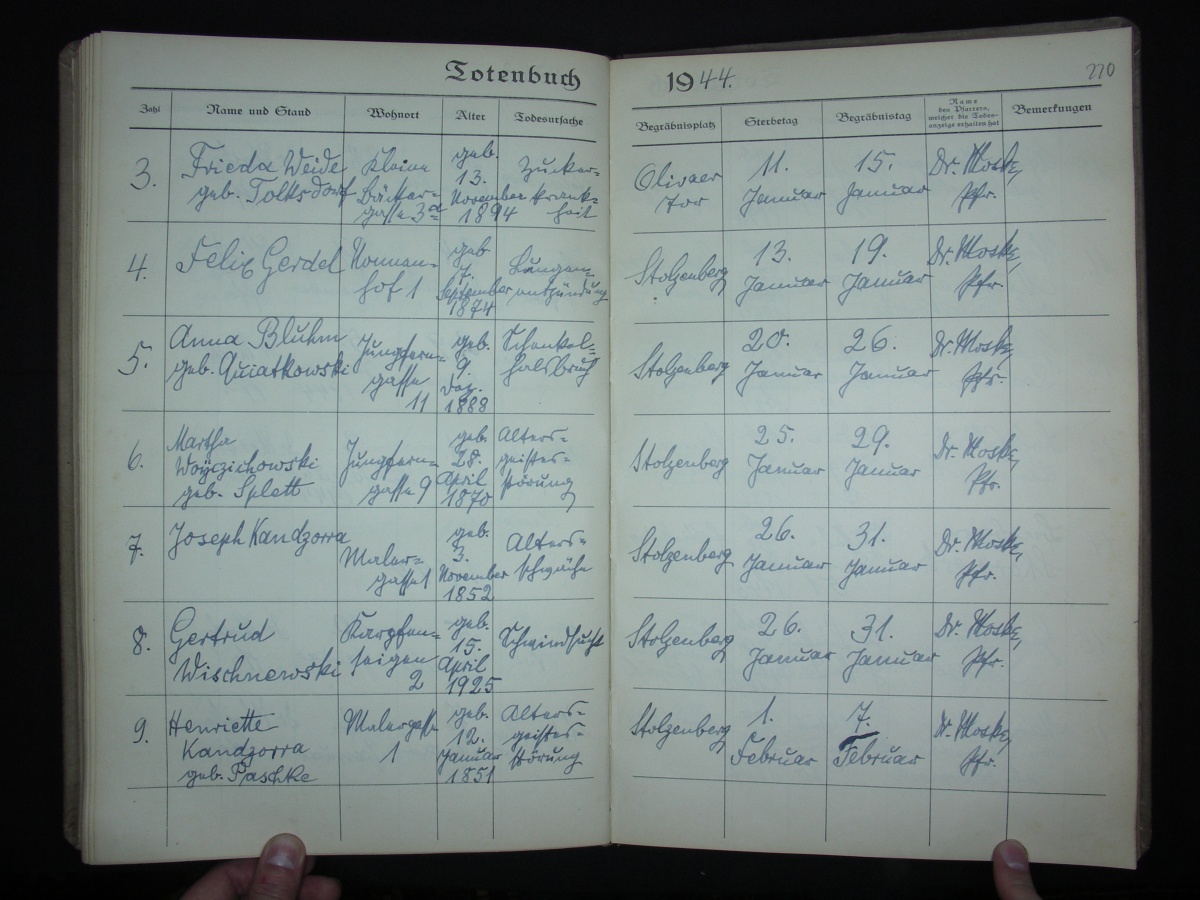 Totenbuch
1944.
220
Zahl
Name und Stand
Wohnort
Alter
Todesursache
Begräbnisplatz
Sterbetag
Begräbnistag
Name
des Pfarrers,
welcher die Todes-
anzeige erhalten hat
Bemerkungen
3.
Frieda Weide
geb. Tolksdorf
Kleine
Bäcker-
gasse 3a
geb.
13.
November
1894
Zucker-
krank-
heit
Olivaer
Tor
11.
Januar
15.
Januar
Dr. Moske,
Pfr.
4.
Felix Gerdel
Nonnen-
hof 1
geb
7.
September
1874
Lungen-
entzündung
Stolzenberg
13.
Januar
19.
Januar
Dr. Moske,
Pfr.
5.
Anna Bluhm
geb. Quiatkowski
Jungfern-
gasse
11
geb.
9.
Dez.
1888
Schenkel-
halsbruch
Stolzenberg
20.
Januar
26.
Januar
Dr. Moske,
Pfr.
6.
Martha
Woyczichowski
geb. Splett
Jungfern-
gasse 9
geb.
28.
April
1870
Alters-
geistes-
störung
Stolzenberg
25.
Januar
29.
Januar
Dr. Moske,
Pfr.
7.
Joseph Kandzorra
Maler-
gasse 1
geb.
3.
November
1852
Alters-
schwäche
Stolzenberg
26.
Januar
31.
Januar
Dr. Moske,
Pfr.
8.
Gertrud
Wischnewski
Karpfen-
seigen
2
geb.
15.
April
1925
Schwindsucht
Stolzenberg
26.
Januar
31.
Januar
Dr. Moske,
Pfr.
9.
Henriette
Kandzorra
geb. Paschke
Malergasse
1
geb.
12.
Januar
1851
Alters-
geistes-
störung
Stolzenberg
1.
Februar
7.
Februar
Dr. Moske,
Pfr.